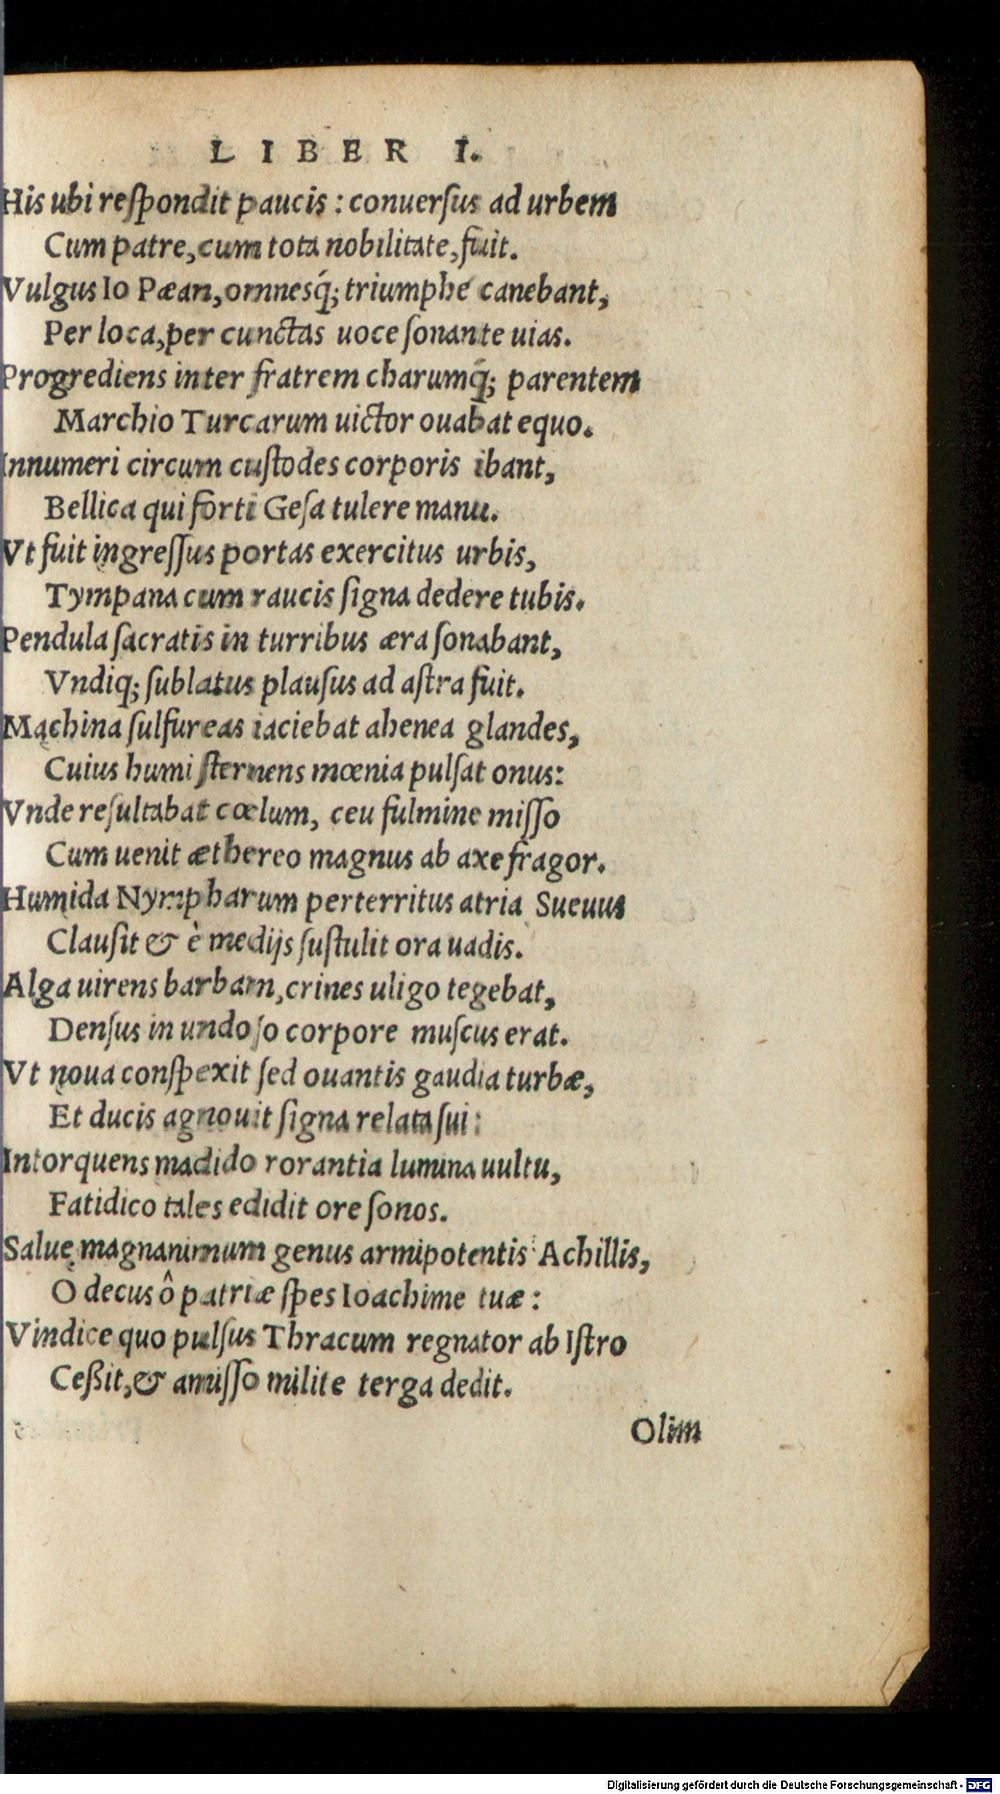 LIBER I.
His ubi reſpondit paucis : conuerſus ad urbem
Cum patre, cum tota nobilitate, fuit.
Vulgus Io Pæan, omnesq́; triumphe canebant,
Per loca, per cunctas uoce ſonante uias.
Progrediens inter fratrem charumq́; parentem
Marchio Turcarum uictor ouabat equo.
Innumeri circum cuſtodes corporis ibant,
Bellica qui forti Geſa tulere manu.
Vt fuit ingreſſus portas exercitus urbis,
Tympana cum raucis ſigna dedere tubis.
Pendula ſacratis in turribus æra ſonabant,
Vndiq; ſublatus plauſus ad aſtra fuit.
Machina ſulfureas iaciebat ahenea glandes,
Cuius humi ſternens mœnia pulſat onus:
Vnde reſultabat cœlum, ceu fulmine miſſo
Cum uenit æthereo magnus ab axe fragor.
Humida Nympharum perterritus atria Sueuus
Clauſit & è medijs ſuſtulit ora uadis.
Alga uirens barbam, crines uligo tegebat,
Denſus in undoſo corpore muſcus erat.
Vt noua conſpexit ſed ouantis gaudia turbæ,
Et ducis agnouit ſigna relata ſui:
Intorquens madido rorantia lumina uultu,
Fatidico tales edidit ore ſonos.
Salue magnanimum genus armipotentis Achillis,
O decus ô patriæ ſpes Ioachime tuæ :
Vindice quo pulſus Thracum regnator ab Iſtro
Ceßit, & amiſſo milite terga dedit.
Olim
Digitalisierung gefördert durch die Deutsche Forschungsgemeinschaft - DFG